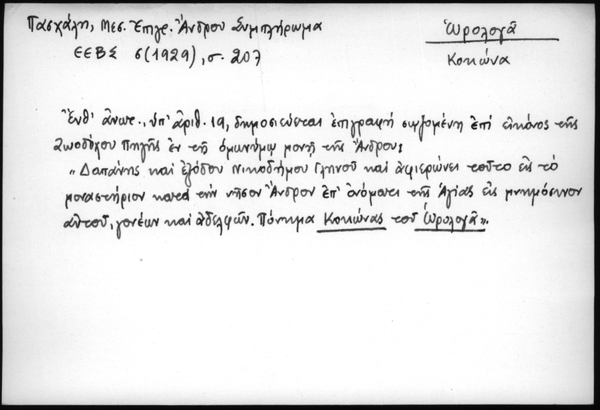 Πασχάλη, Μεσ. Ἐπιγρ. Ἄνδρου Συμπλήρωμα
ΕΕΒΣ 6(1929), σ. 207
Ὡρολογᾶ
Κοκώνα
Ἔνθ' ἀνωτ., ὑπ' ἀριθ. 19, δημοσιεύεται ἐπιγραφή σῳζομένη ἐπί εἰκόνος τῆς
Ζωοδόχου Πηγῆς ἐν τῇ ὁμωνύμῳ μονῇ τῆς Ἄνδρου:
"Δαπάνης καί ἐξόδου Νικοδήμου Γληνοῦ καί ἀφιερώνει τοῦτο εἰς τό
μοναστήριον κατά τήν νῆσον Ἄνδρον ἐπ' ὀνόματι τῆς Ἁγίας εἰς μνημόσυνον
αὐτοῦ, γονέων καί ἀδελφῶν. Πόνημα Κοκώνας τοῦ Ὡρολογᾶ".